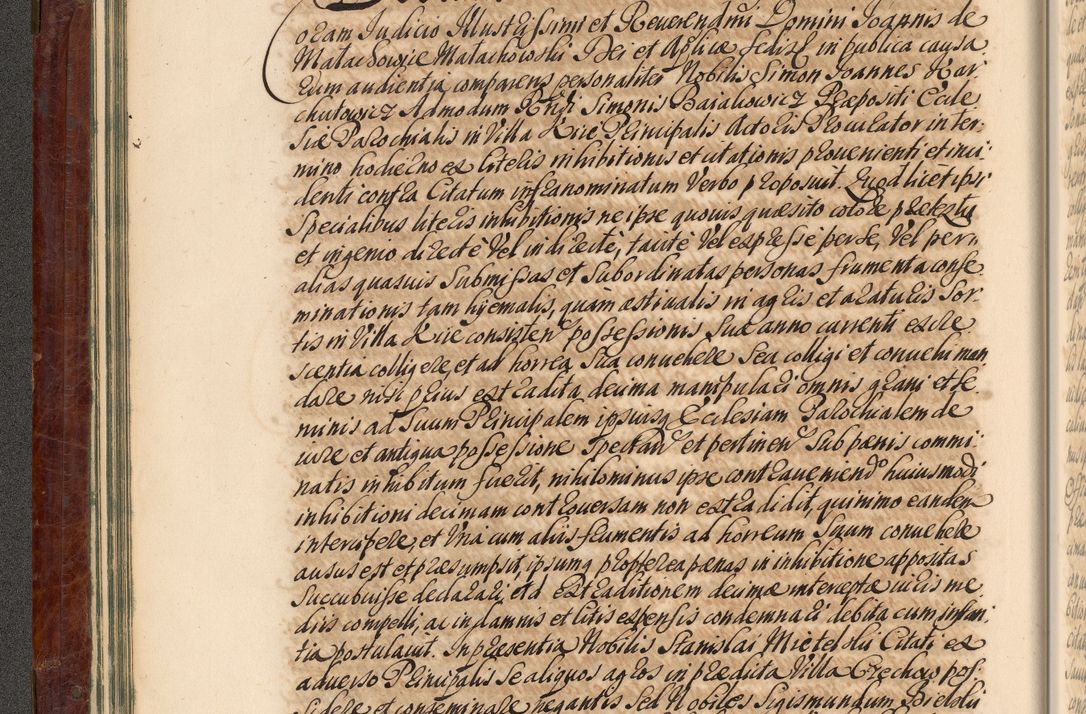 Coram Judicio Illustrissimi et Reverendmi Domini Joannis de
Małachowice Małachowski Dei et Aplicæ Sedis in publica causa
rum audientia comparens personaliter Nobilis Simon Joannes Kar
chutowicz Admodum Rndi Simonis Baiakowicz Præpositi Eccle
siæ Parochialis in Villa Principalis Actoris Procurator in ter:
mino hodierno ex literis inhibitionis et citationis provenienti et inci
denti contra Citatum infranominatum Verbo proposuit. Quod licet ipsi
Specialibus literis inhibitionis ne ipse quovis quæsito colore prætextu
et ingenio directe Vel indirecte, tacite Vel expresse per se, Vel per
alias quasvis Submissas et Subordinatas personas frumenta conse
minationis tam hyemalis, quam æstivalis in agris et araturis Sor
tis in Villa consisten possessionis Suæ anno currenti excre
scentia colligere, et ad horrea Sua convehere Seu colligi et convehi man
dare nisi prius extradita decima manipulari omnis grani et Se
minis ad Suum Principalem ipsiusq Ecclesiam Parochialem de
iure et antiqua possessione Spectan et pertinen Sub pænis commi
natis inhibitum fuerit, nihilominus ipse contraveniendo huiusmodi
inhibitioni decimam controversam non extradidit, quinimo eandem
intercipere, et Una cum aliis frumentis ad horreum Suum convehere
ausus est et præsumpsit, ipsumq propterea pænas in inhibitione appositas
Succubuisse declarari, et ad extraditionem decimæ interceptæ iuris me
diis compelli, ac in damnis et litis expensis condemnari debita cum instan
tia postulavit. In præsentia Nobilis Stanislai Citati ex
adverso Principalis Se aliquos agros in prædicta Villa pos:
sidere et conseminare negantis Sed Nobiles Sigismundum